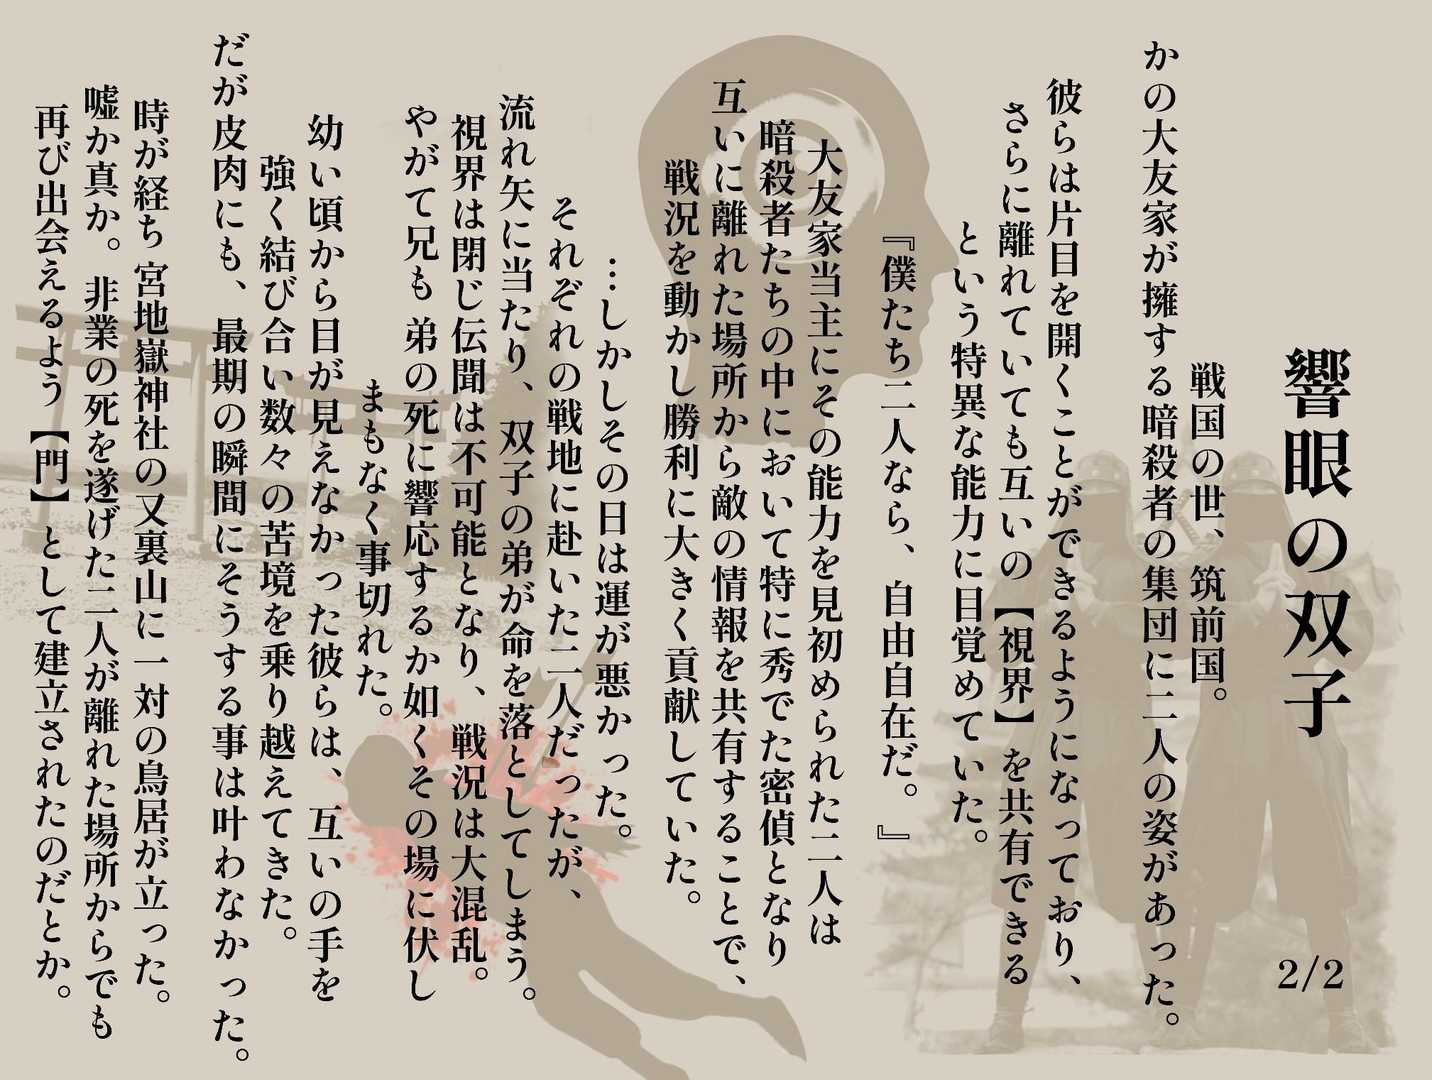 響眼の双子
2/2
戦国の世、筑前国。
かの大友家が擁する暗殺者の集団に二人の姿があった。
彼らは片目を開くことができるようになっており、
さらに離れていても互いの【視界】を共有できる
という特異な能力に目覚めていた。
『僕たち二人なら、自由自在だ。』
大友家当主にその能力を見初められた二人は
暗殺者たちの中において特に秀でた密偵となり
互いに離れた場所から敵の情報を共有することで、
戦況を動かし勝利に大きく貢献していた。
…しかしその日は運が悪かった。
それぞれの戦地に赴いた二人だったが、
流れ矢に当たり、双子の弟が命を落としてしまう。
視界は閉じ伝聞は不可能となり、戦況は大混乱。
やがて兄も 弟の死に響応するか如くその場に伏し
まもなく事切れた。
幼い頃から目が見えなかった彼らは、互いの手を
強く結び合い数々の苦境を乗り越えてきた。
だが皮肉にも、最期の瞬間にそうする事は叶わなかった。
時が経ち 宮地嶽神社の又裏山に一対の鳥居が立った。
嘘か真か。非業の死を遂げた二人が離れた場所からでも
再び出会えるよう【門】として建立されたのだとか。